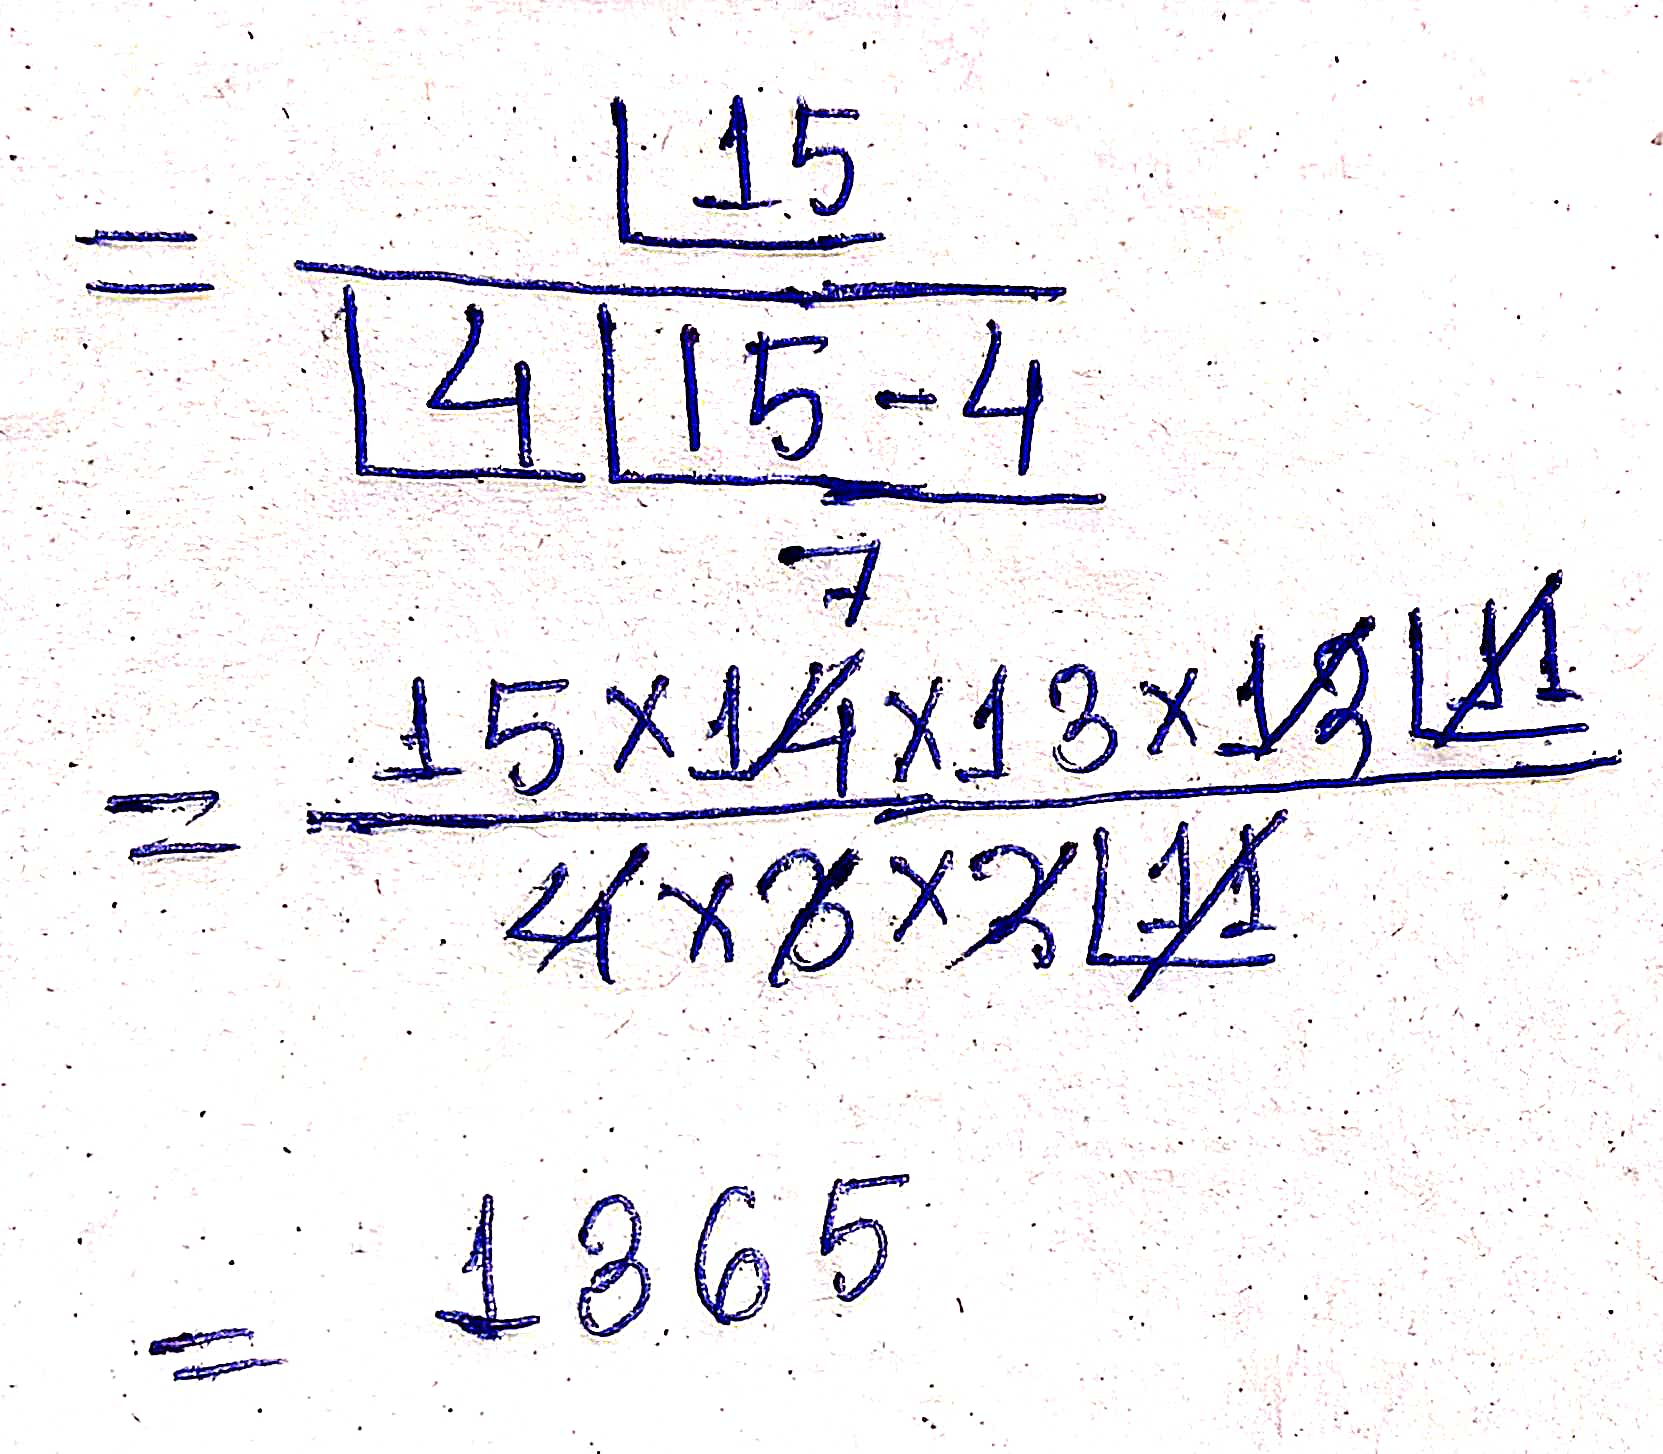 = ⌊15
⌊4 ⌊15-4
7
= 15×14×13×12 ⌊11
4×3×2 ⌊11
= 1365